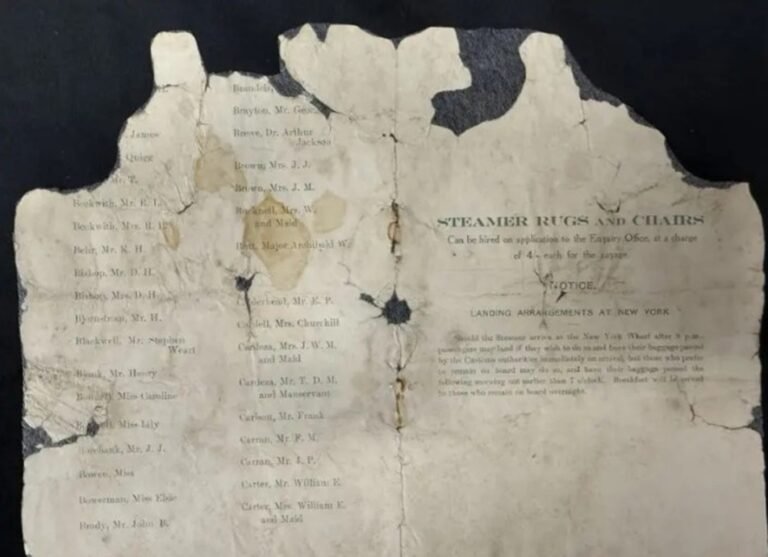 James
Quigg
Mr. T.
Beckwith, Mr. R. L.
Beckwith, Mrs. R. L.
Behr, Mr. K. H.
Bishop, Mr. D. H.
Bishop, Mrs. D. H.
Bjornstrom, Mr. H.
Blackwell, Mr. Stephen
Weart
Blank, Mr. Henry
Bonnell, Miss Caroline
Miss Lily
Borebank, Mr. J. J.
Bowen, Miss
Bowerman, Miss Elsie
Brady, Mr. John B.
Brandeis,
Brayton, Mr. Geor
Brewe, Dr. Arthur
Jackson
Brown, Mrs. J. J.
Brown, Mrs. J. M.
Bucknell, Mrs. W.
and Maid
Butt, Major Archibald W.
Calderhead, Mr. E. P.
Cardell, Mrs. Churchill
Cardeza, Mrs. J. W. M.
and Maid
Cardeza, Mr. T. D. M.
and Manservant
Carlson, Mr. Frank
Carran, Mr. F. M.
Carran, Mr. J. P.
Carter, Mr. William E.
Carter, Mrs. William E.
and Maid
STEAMER RUGS AND CHAIRS
Can be hired on application to the Enquiry Office, at a charge
of 4/- each for the voyage.
NOTICE.
LANDING ARRANGEMENTS AT NEW YORK
Should the Steamer arrive at the New York Wharf after 8 p.m.,
passengers may land if they wish to do so and have their baggage passed
by the Customs authorities immediately on arrival, but those who prefer
to remain on board may do so, and have their baggage passed the
following morning not earlier than 7 o'clock. Breakfast will be served
to those who remain on board overnight.